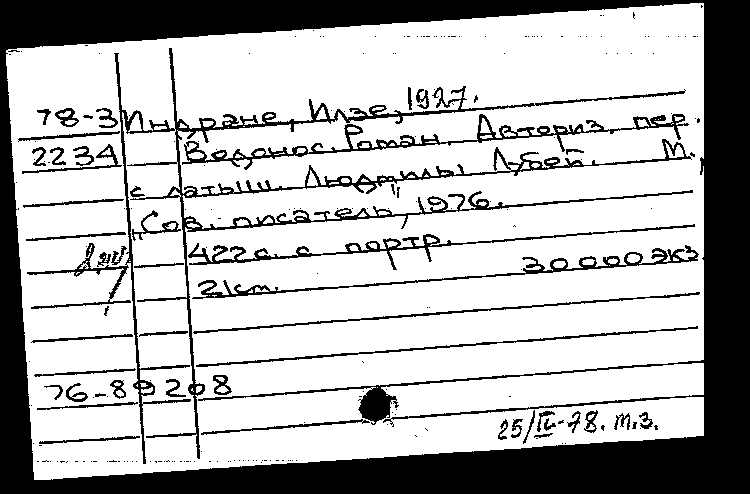 78-3 Индране, Илзе, 1927.
2234 Водонос. Роман. Авториз. пер.
с латыш. Людмилы Лубей. М.,
„Сов. писатель", 1976.
422 с. с портр.
21 см. 30 000 экз.
76-89208
25/IV-78. т.з.